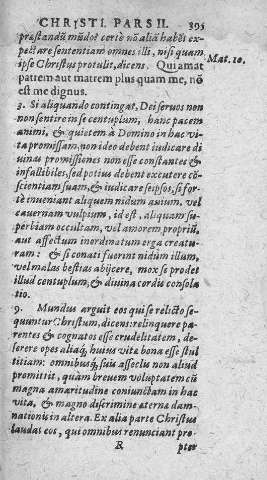 CHRISTI. PARS II. 395
præstandũ mũdo? certè nõ aliã habẽt ex-
pectare sententiam omnes illi, nisi quam
ipse Christus protulit, dicens. Qui amat
Mat. 10.
patrem aut matrem plus quam me, nõ
est me dignus.
3. Si aliquando contingat, Dei seruos non
non sentire in se centuplum, hanc pacem
animi, & quietem à Domino in hac vi-
ta promissam, non ideo debent iudicare di
uinas promissiones non esse constantes &
infallibiles, sed potius debent excutere cõ-
scientiam suam, & iudicare seipsos, si for-
tè inueniant aliquem nidum auium, vel
cauernam vulpium, id est, aliquam su-
perbiam occultam, vel amorem propriũ,
aut affectum inordinatum erga creatu-
ram: & si conati fuerint nidum illum,
vel malas bestias abijcere, mox se prodet
illud centuplum, & diuina cordis consola
tio.
9. Mundus arguit eos qui se relicto se-
quuntur Christum, dicens: relinquere pa-
rentes & cognatos esse crudelitatem, de-
serere opes aliaq́; huius vitæ bona esse stul
titiam: omnibusq́; suis asseclis non aliud
promittit, quàm breuem voluptatem cũ
magna amaritudine coniunctam in hac
vita, & magno discrimine æternæ dam-
nationis in altera. Ex alia parte Christus
laudat eos, qui omnibus renunciant pro-
R pter